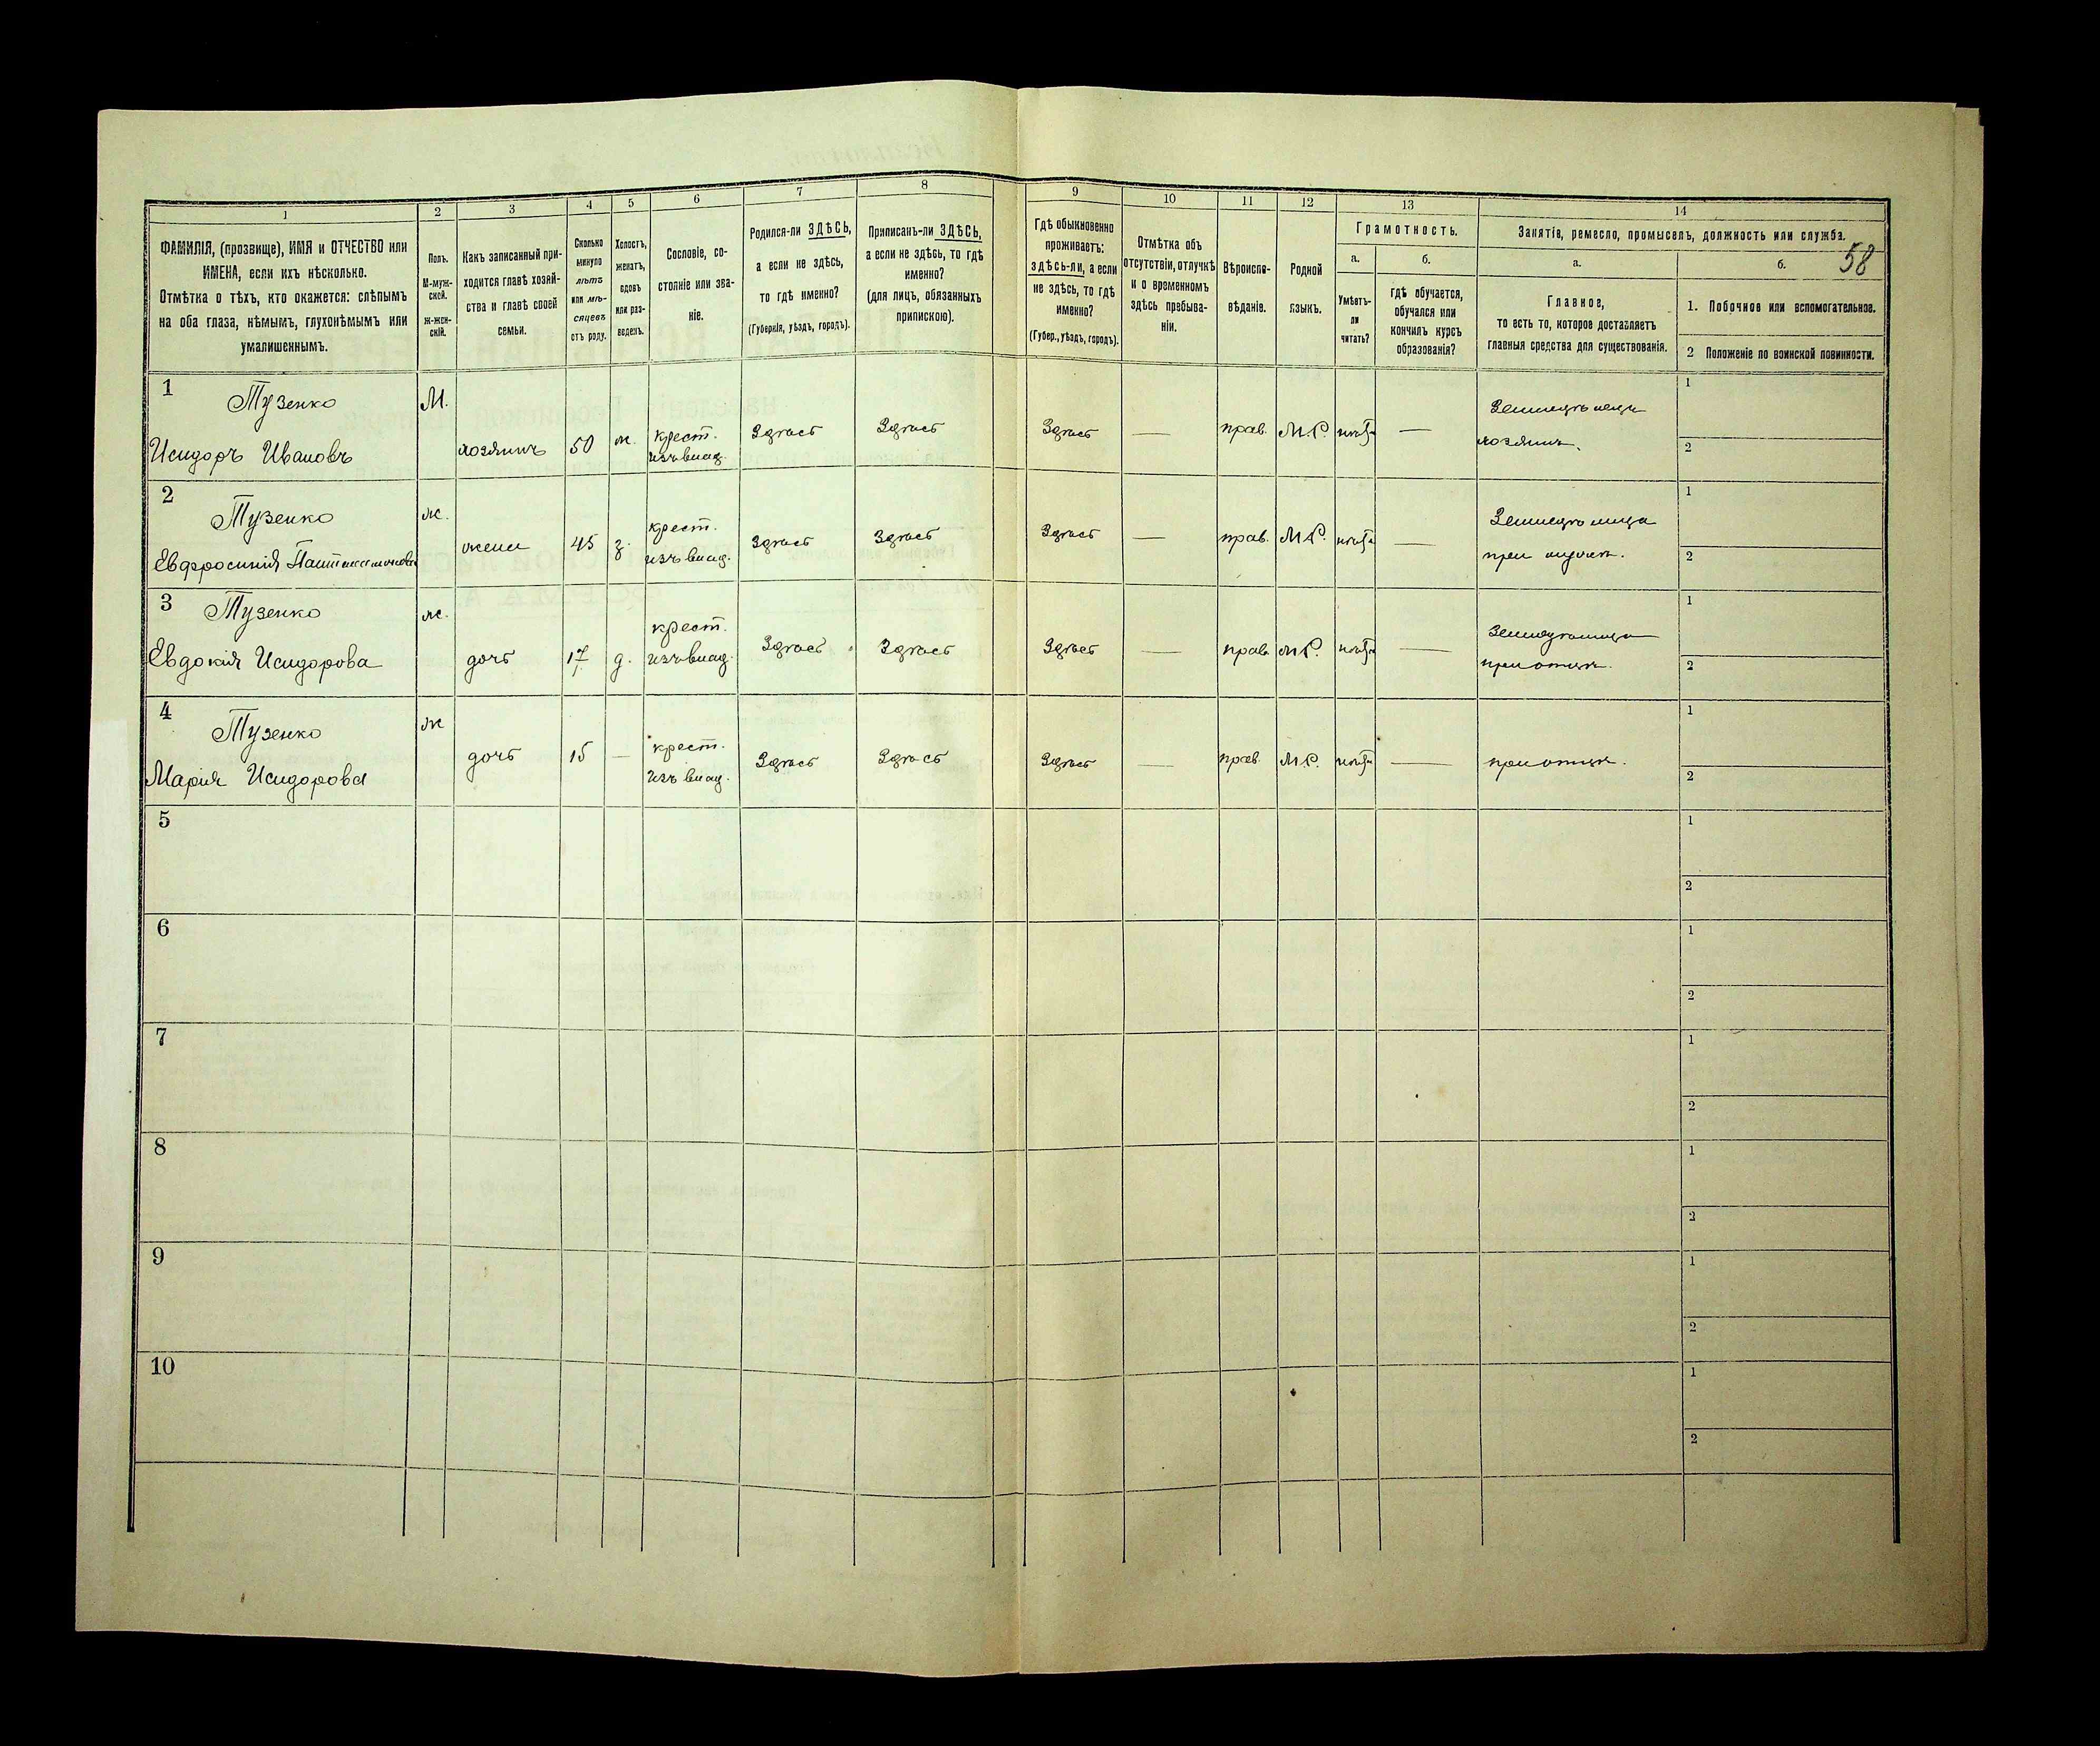 58
1 2 3 4 5 6 7 8 9 10 11 12 13 14
ФАМИЛІЯ, (прозвище), ИМЯ и ОТЧЕСТВО или
ИМЕНА, если ихъ нѣсколько.
Отмѣтка о тѣхъ, кто окажется: слѣпымъ
на оба глаза, нѣмымъ, глухонѣмымъ или
умалишеннымъ.
Полъ.
М-муж-
ской.
Ж-жен-
скій.
Какъ записанный при-
ходится главѣ хозяй-
ства и главѣ своей
семьи.
Сколько
минуло
лѣтъ
или мѣ-
сяцевъ
отъ роду.
Холостъ,
женатъ,
вдовъ
или раз-
веденъ.
Сословіе, со-
стояніе или зва-
ніе.
Родился-ли ЗДѢСЬ,
а если не здѣсь,
то гдѣ именно?
(Губернія, уѣздъ, городъ).
Приписанъ-ли ЗДѢСЬ,
а если не здѣсь, то гдѣ
именно?
(для лицъ, обязанныхъ
припискою).
Гдѣ обыкновенно
проживаетъ:
здѣсь-ли, а если
не здѣсь, то гдѣ
именно?
(Губер., уѣздъ, городъ).
Отмѣтка объ
отсутствіи, отлучкѣ
и о временномъ
здѣсь пребыва-
ніи.
Вѣроиспо-
вѣданіе.
Родной
языкъ.
Грамотность.
а.
Умѣетъ-
ли
читать?
б.
гдѣ обучается,
обучался или
кончилъ курсъ
образованія?
Занятіе, ремесло, промыселъ, должность или служба.
а.
Главное,
то есть то, которое доставляетъ
главныя средства для существованія.
б.
1. Побочное или вспомогательное.
2 Положеніе по воинской повинности.
1 Тузенко
Исидоръ Ивановъ
М.
хозяинъ
50
ж.
крест.
изъ влад.
Здѣсь
Здѣсь
Здѣсь
—
прав.
М.Р.
нѣтъ
—
Земледѣлецъ
хозяинъ.
1
2
2 Тузенко
Евфросинія
ж.
жена
45
з.
крест.
изъ влад.
Здѣсь
Здѣсь
Здѣсь
—
прав.
М.Р.
нѣтъ
—
Земледѣлица
при мужѣ.
1
2
3 Тузенко
Евдокія Исидорова
ж.
дочь
17
д.
крест.
изъ влад.
Здѣсь
Здѣсь
Здѣсь
—
прав.
М.Р.
нѣтъ
—
Земледѣлица
при отцѣ.
1
2
4 Тузенко
Марія Исидорова
ж
дочь
15
—
крест.
изъ влад.
Здѣсь
Здѣсь
Здѣсь
—
прав.
М.Р.
нѣтъ
—
при отцѣ.
1
2
5
1
2
6
1
2
7
1
2
8
1
2
9
1
2
10
1
2